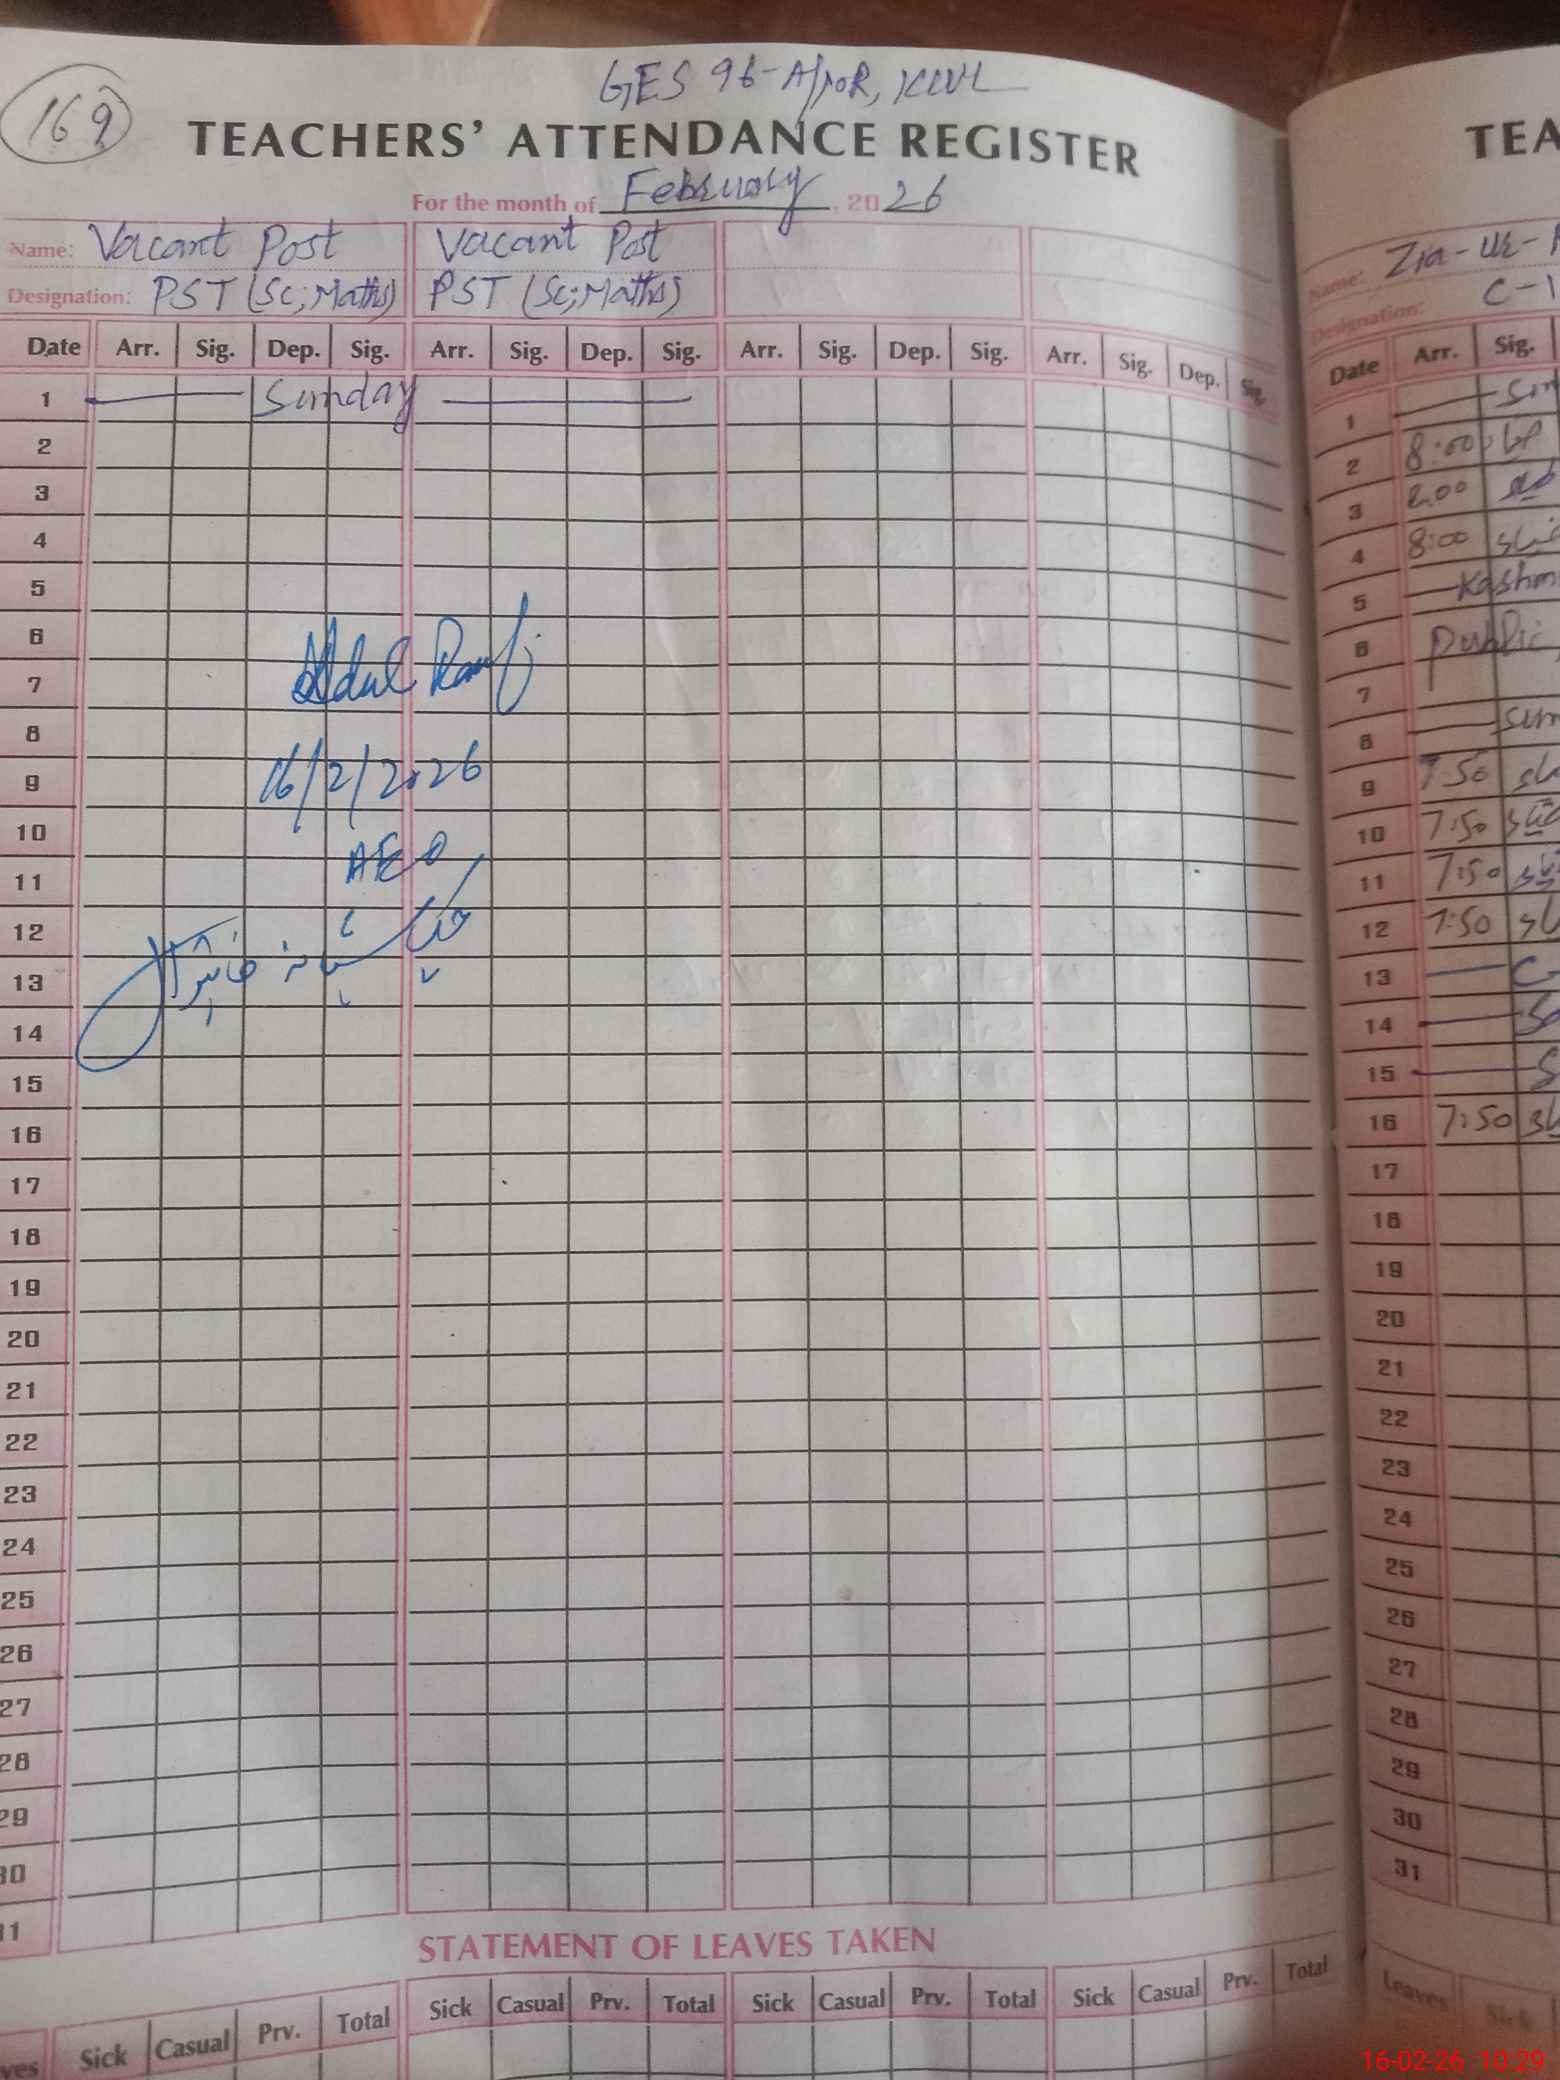 169
GES 96-A/10R, KWL
TEACHERS' ATTENDANCE REGISTER
For the month of February, 2026
Name: Vacant Post Vacant Post
Designation: PST (Sc; Maths) PST (Sc; Maths)
Date Arr. Sig. Dep. Sig. Arr. Sig. Dep. Sig. Arr. Sig. Dep. Sig. Arr. Sig. Dep. Sig.
1 Sunday
2
3
4
5
6
7
Abdul Rauf
8
9
16/2/2026
10
AEO
11
12
13
14
15
16
17
18
19
20
21
22
23
24
25
26
27
28
29
30
31
STATEMENT OF LEAVES TAKEN
Sick Casual Prv. Total Sick Casual Prv. Total Sick Casual Prv. Total Sick Casual Prv. Total
TEA
Name: Zia-ur-
Designation: C-1
Date Arr. Sig.
1
2 8:00
3 8:00
4 8:00
5 Kashm
6 Public
7
8 Sun
9 7:50
10 7:50
11 7:50
12 7:50
13
14
15
16 7:50
17
18
19
20
21
22
23
24
25
26
27
28
29
30
31
Leaves Sick
16-02-26 10:29